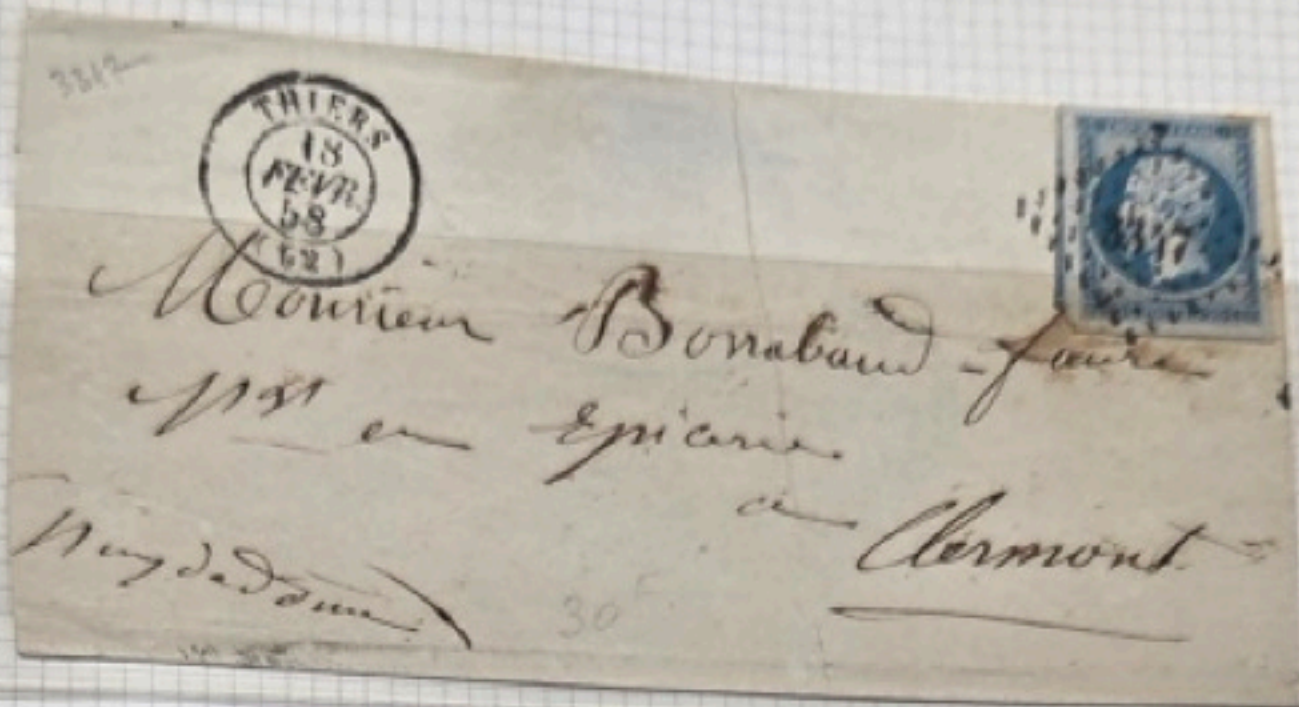 THIERS
18
FEVR.
58
(62)
Monsieur Bonnabaud-faure
Md en Epicerie
a Clermont
Puy de dome
30 F